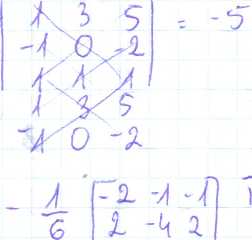 | 1 3 5 |
| -1 0 -2 | = -5
| 1 1 1 |
1 3 5
-1 0 -2
- 1/6 [ -2 -1 -1 ]
[ 2 -4 2 ]